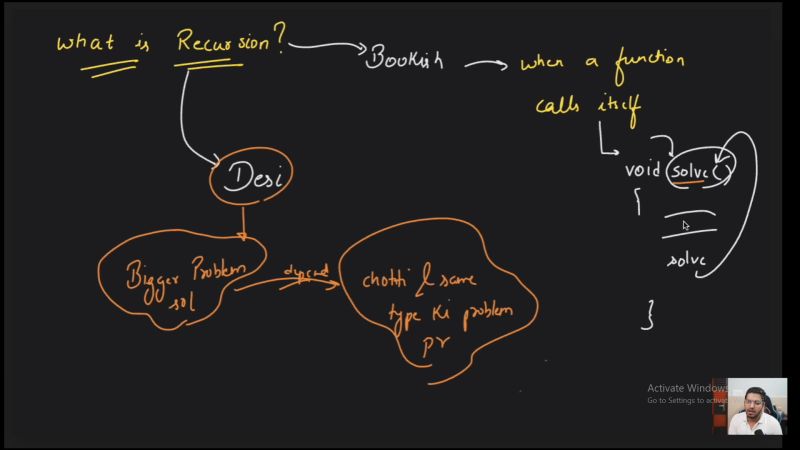 What is Recursion?
Bookish
when a function
calls itself
void solve()
{
solve
}
Desi
Bigger Problem
sol
depend
chotti & same
type ki problem
pr
Activate Windows
Go to Settings to activat